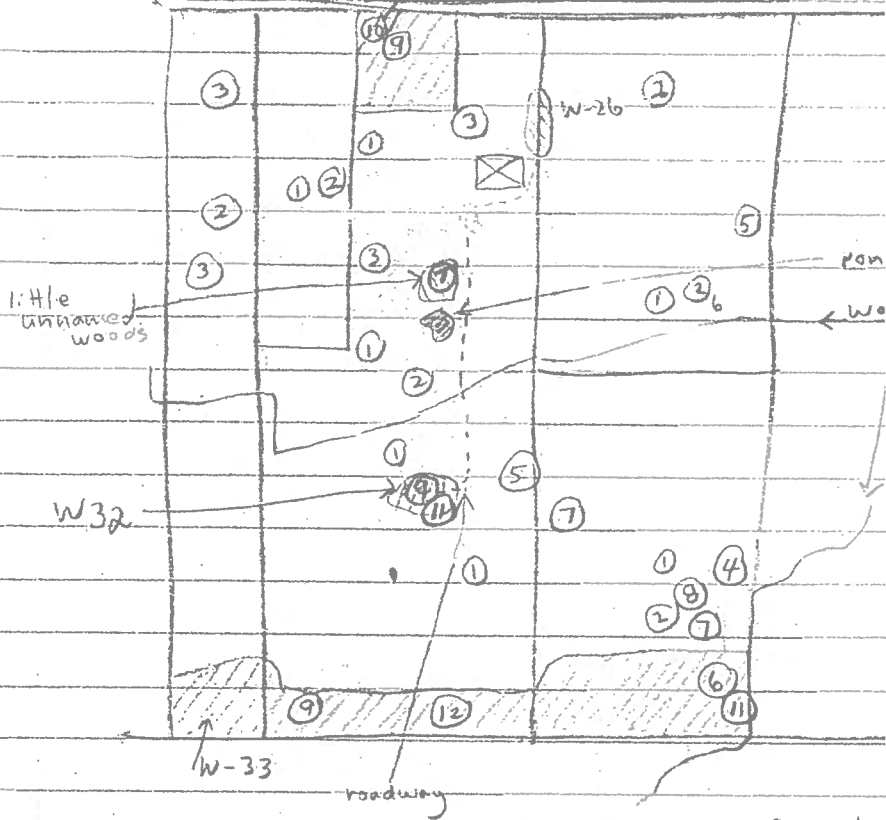 10
9
3
2
3
W-26
1
1
2
2
5
3
7
little
unnamed
woods
1
2
6
1
2
1
5
W32
9
11
7
1
1
4
8
2
7
6
9
12
11
W-33
roadway